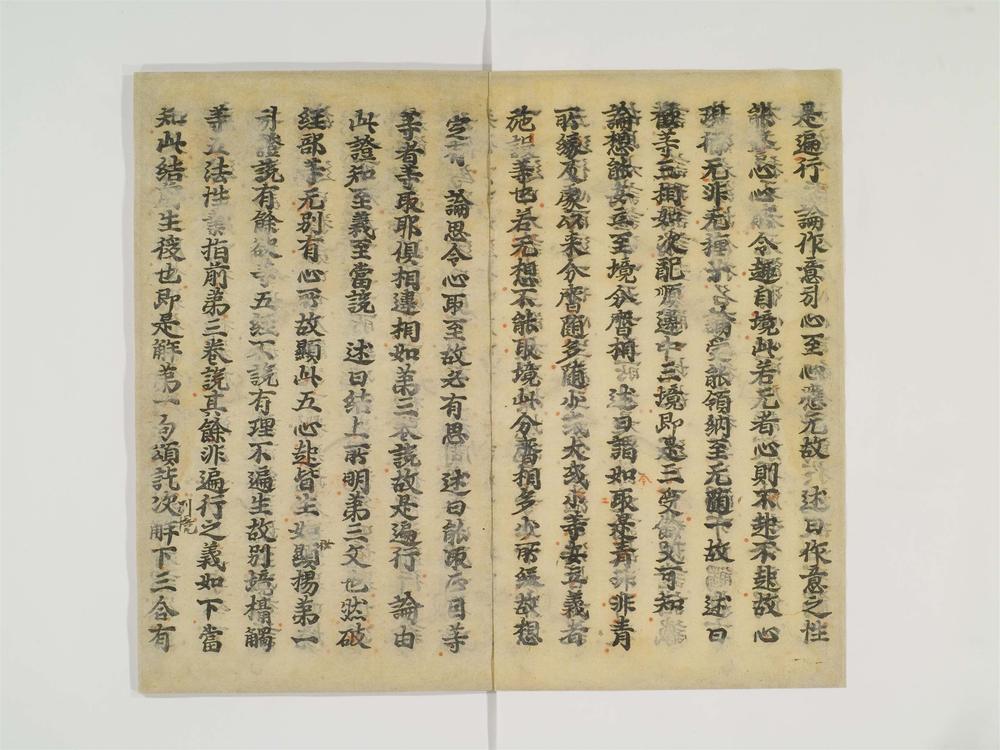 是遍行 論作意引心至心應无故 述曰作意之性
能  心心 令趣自境此若无者心則不起不起故心
 標无非 種  論受能領納至无 十故 述曰
歡等三相如次配順違中三境即是三受餘文可知
論想能安立至境分齊相 述曰謂如取青非非青
所緣 處 來分齊 多隨少或大或小等安立義者
施設等也若无想不能取境此分齊相多少所緣故想
定有 論思令心取至故必有思 述曰能取正因等
等者等取耶俱相違相如第三卷說故是遍行 論由
此證知至義至當說 述曰結上所明第三文也然破
經部等元別有心所故顯此五心起皆生如顯揚第一
引證說有餘欲等五經不說有理不遍生故別境 觸
等五法性業指前第三卷說其餘非遍行之義如下當
別境
知此結 生後也即是解第一句頌訖次解下三合有